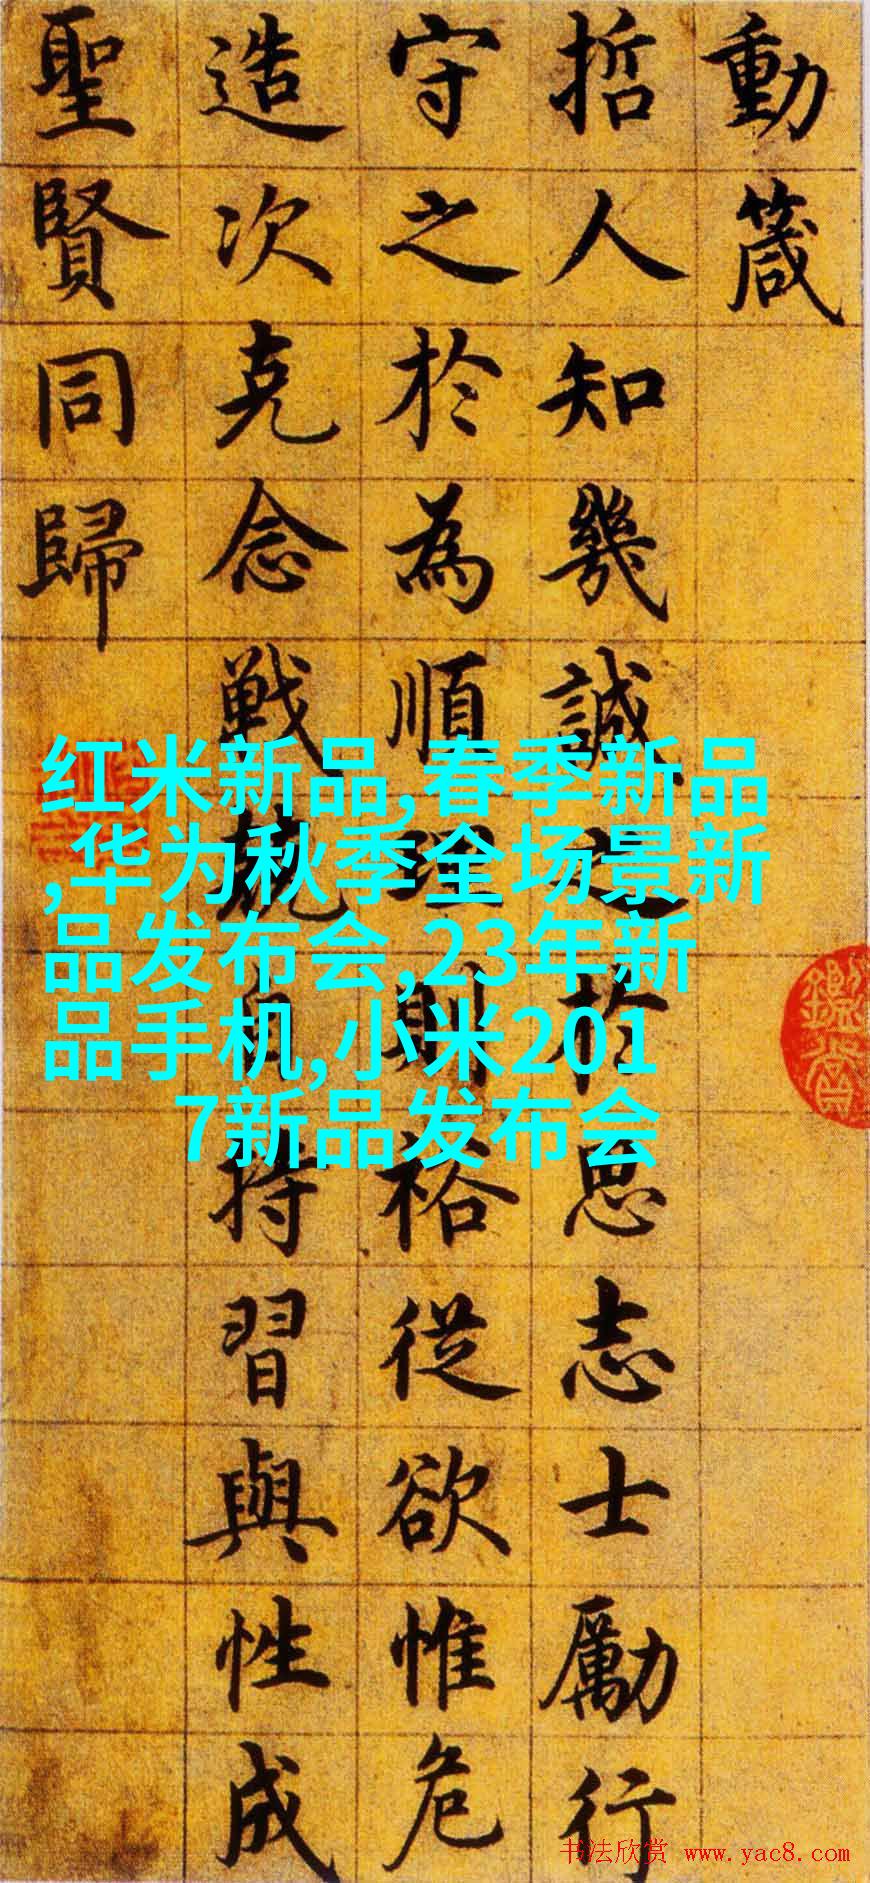 動箴
哲人知幾誠之於思志士勵行
守之於為順理則裕從欲惟危
造次克念戰兢自持習與性成
聖賢同歸
红米新品,春季新品
,华为秋季全场景新
品发布会,23年新
品手机,小米201
7新品发布会
书法欣赏 www.yac8.com